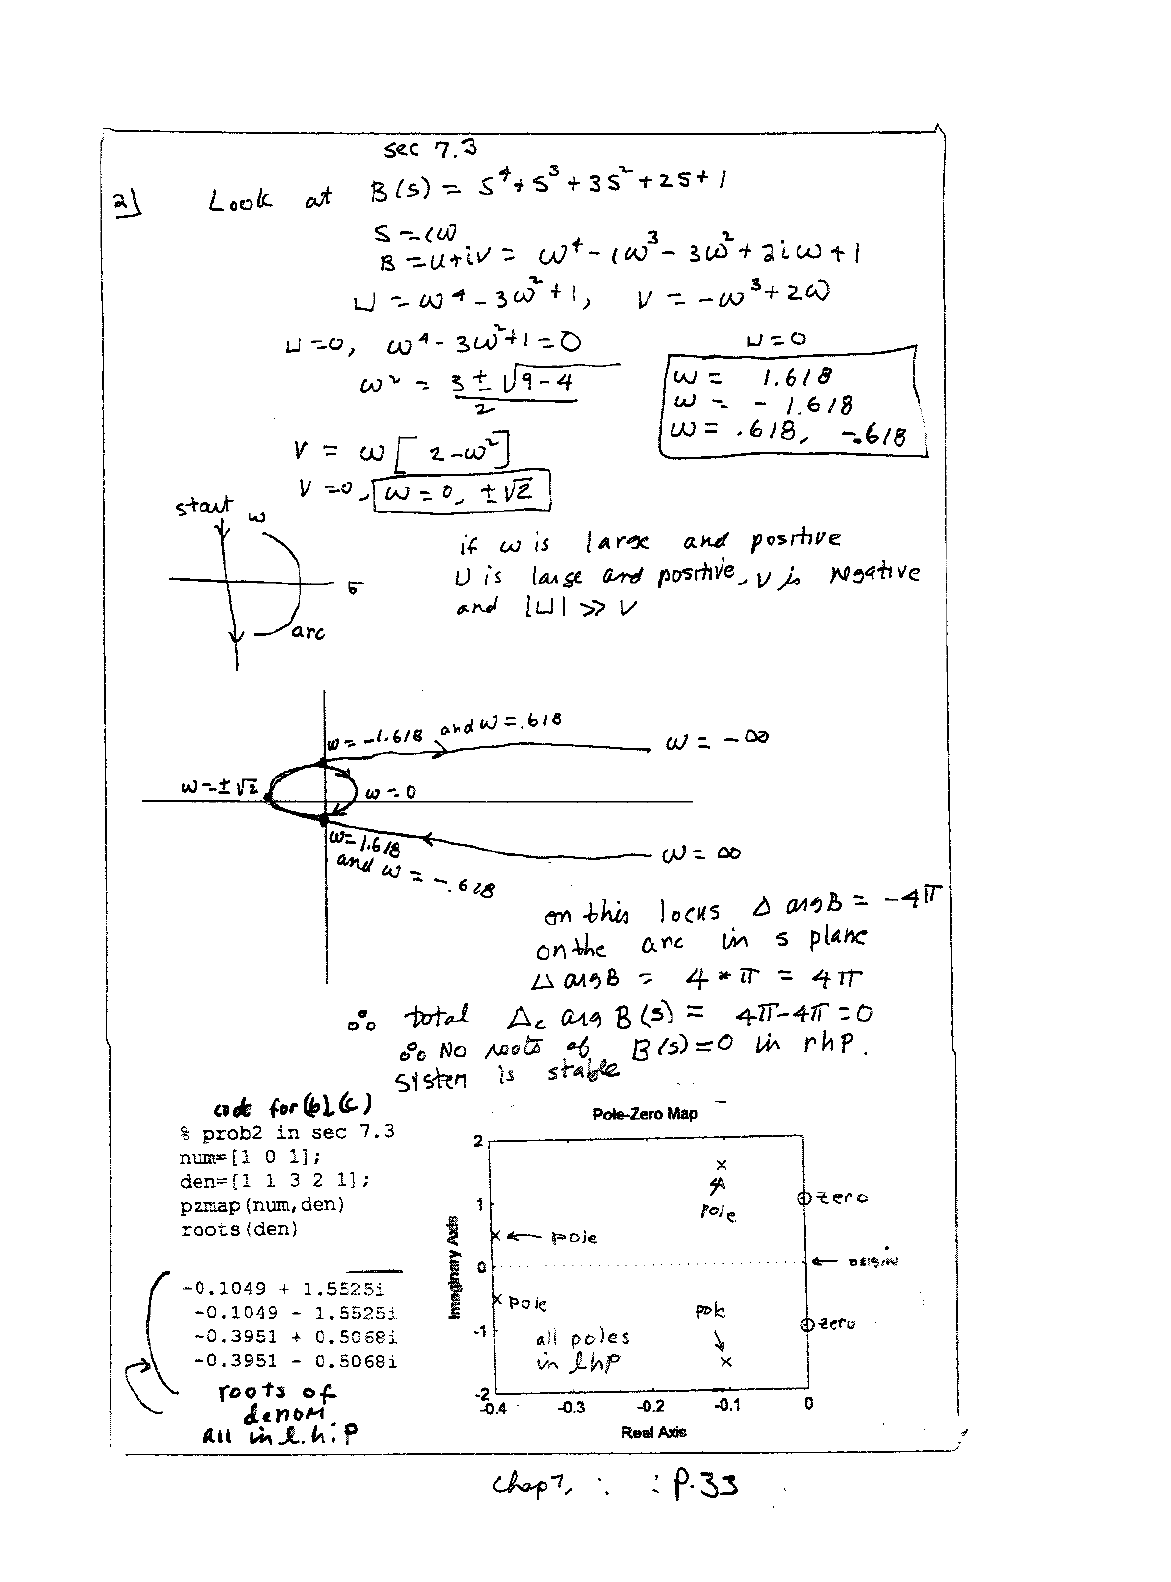 sec 7.3
2) Look at B(s) = s⁴+s³+3s²+2s+1
s = iω
B = u+iv = ω⁴ - iω³ - 3ω² + 2iω + 1
U = ω⁴ - 3ω² + 1, V = -ω³ + 2ω
U = 0, ω⁴ - 3ω² + 1 = 0
U = 0
ω² = (3 ± √(9-4))/2
ω = 1.618
ω = - 1.618
ω = .618, -.618
V = ω[2-ω²]
V = 0, ω = 0, ±√2
start ω
σ
arc
if ω is large and positive
U is large and positive, V is negative
and |U| >> V
ω = -1.618 and ω = .618
ω = -∞
ω = ±√2
ω = 0
ω = 1.618
and ω = -.618
ω = ∞
on this locus Δ arg B = -4π
on the arc in s plane
Δ arg B = 4 * π = 4π
∴ total Δc arg B(s) = 4π-4π = 0
∴ No roots of B(s)=0 in rhp.
System is stable
code for (b), (c)
% prob2 in sec 7.3
num=[1 0 1];
den=[1 1 3 2 1];
pzmap(num,den)
roots(den)
-0.1049 + 1.5525i
-0.1049 - 1.5525i
-0.3951 + 0.5068i
-0.3951 - 0.5068i
roots of
denom.
all in l.h.p
Pole-Zero Map
Imaginary Axis
2
1
0
-1
-2
pole
zero
pole
origin
pole
pole
zero
all poles
in lhp
-0.4 -0.3 -0.2 -0.1 0
Real Axis
Chap 7, P.33